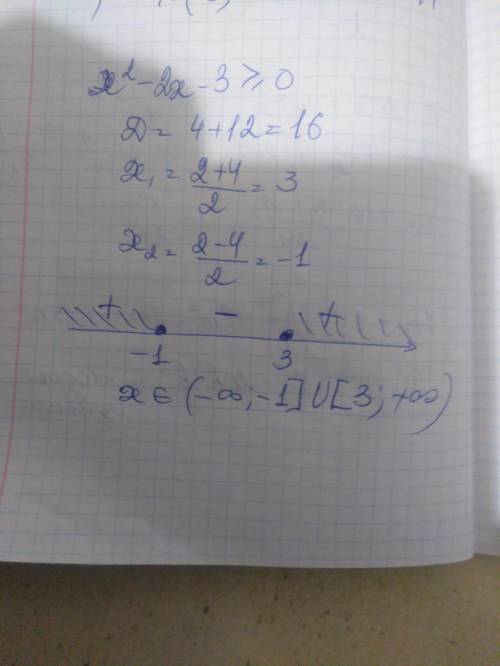 x² - 2x - 3 ≥ 0
D = 4 + 12 = 16
x₁ = (2+4)/2 = 3
x₂ = (2-4)/2 = -1
+ - +
-1 3
x ∈ (-∞; -1] U [3; +∞)